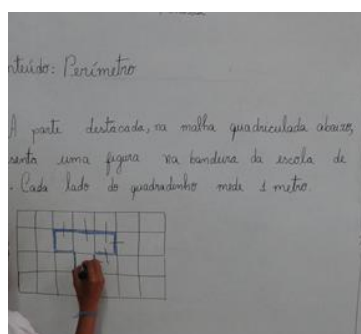 nteúdo: Perímetro
A parte destacada, na malha quadriculada abaixo,
senta uma figura na bandeira da escola de
. Cada lado do quadradinho mede 1 metro.